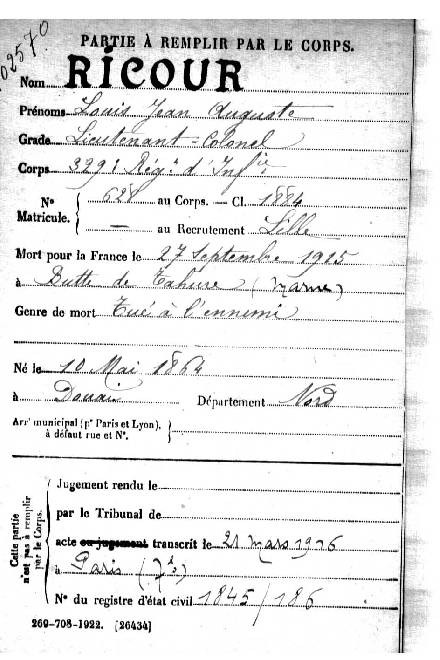 02570
PARTIE À REMPLIR PAR LE CORPS.
Nom RICOUR
Prénoms Louis Jean Auguste
Grade Lieutenant-Colonel
Corps 329e Régt d'Infie
N° Matricule. { 628 au Corps. — Cl. 1884
— au Recrutement Lille
Mort pour la France le 27 Septembre 1915
à Butte de Tahure (Marne)
Genre de mort Tué à l'ennemi
Né le 10 Mai 1864
à Douai Département Nord
Arrt municipal (pr Paris et Lyon), à défaut rue et N°. }
Cette partie n'est pas à remplir par le Corps.
Jugement rendu le
par le Tribunal de
acte ou jugement transcrit le 21 mars 1916
à Paris (7e)
N° du registre d'état civil 1845/186
269-708-1922. [26434]